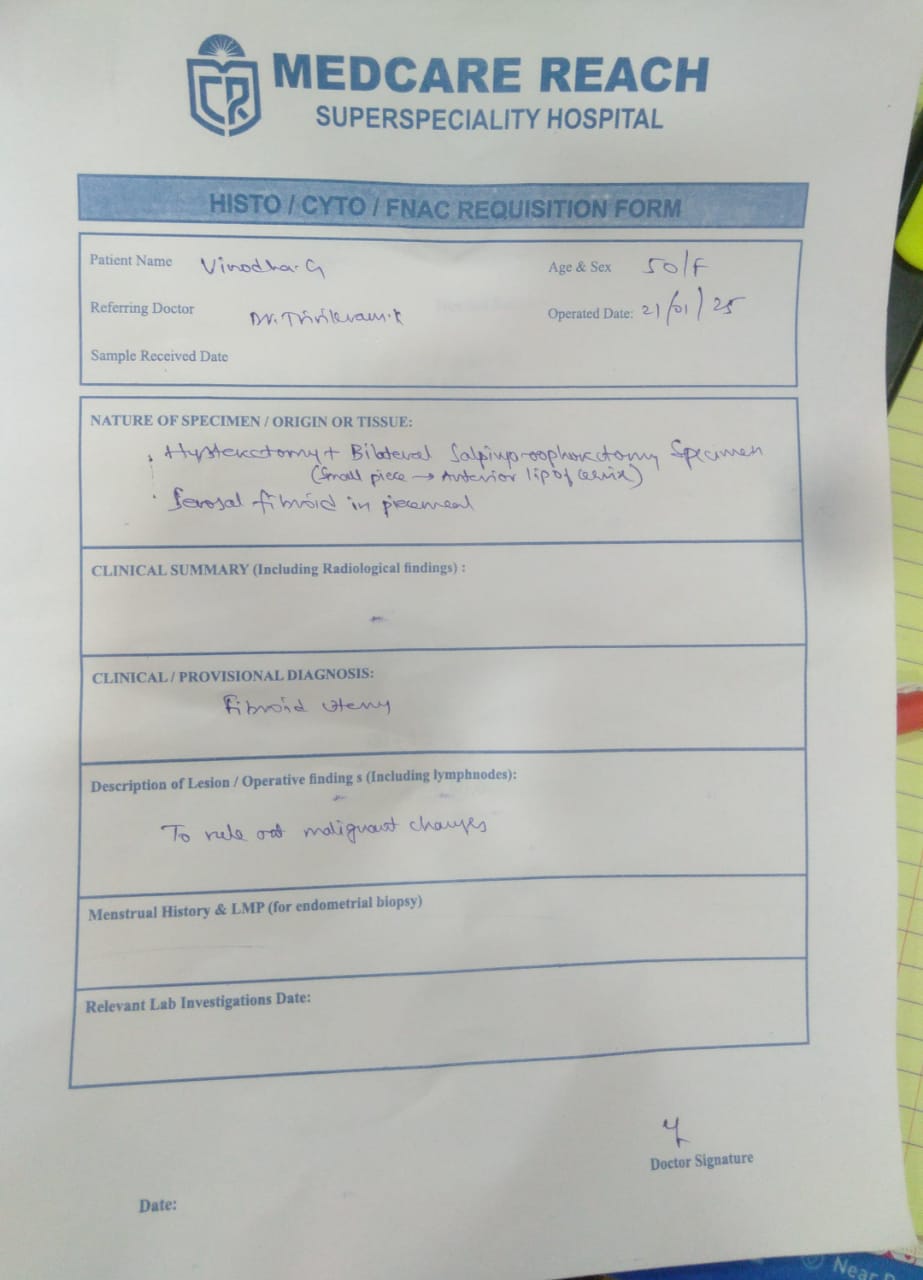 MEDCARE REACH
SUPERSPECIALITY HOSPITAL
HISTO / CYTO / FNAC REQUISITION FORM
Patient Name Vinodha.G Age & Sex 50/F
Referring Doctor Dr.Thrikram.K Operated Date: 21/01/25
Sample Received Date
NATURE OF SPECIMEN / ORIGIN OR TISSUE:
. Hysterectomy + Bilateral Salpingoophorectomy Specimen
(Small piece → Anterior lip of cervix)
. Serosal fibroid in piecemeal
CLINICAL SUMMARY (Including Radiological findings) :
-
CLINICAL / PROVISIONAL DIAGNOSIS:
Fibroid uterus
Description of Lesion / Operative finding s (Including lymphnodes):
To rule out malignant changes
Menstrual History & LMP (for endometrial biopsy)
Relevant Lab Investigations Date:
Doctor Signature
Date:
Near